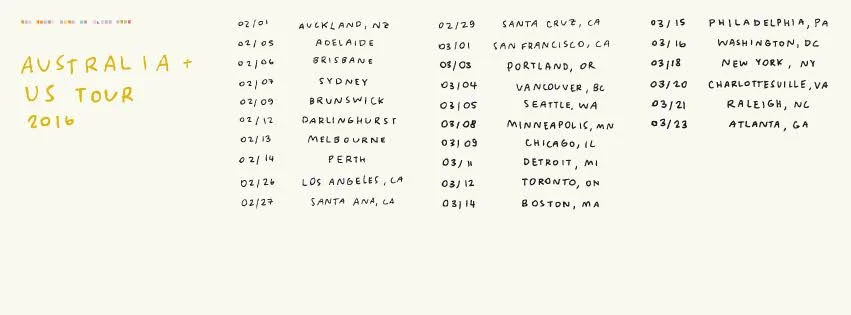 AUSTRALIA +
US TOUR
2016
02/01 AUCKLAND, NZ
02/05 ADELAIDE
02/06 BRISBANE
02/07 SYDNEY
02/09 BRUNSWICK
02/12 DARLINGHURST
02/13 MELBOURNE
02/14 PERTH
02/26 LOS ANGELES, CA
02/27 SANTA ANA, CA
02/29 SANTA CRUZ, CA
03/01 SAN FRANCISCO, CA
03/03 PORTLAND, OR
03/04 VANCOUVER, BC
03/05 SEATTLE, WA
03/08 MINNEAPOLIS, MN
03/09 CHICAGO, IL
03/11 DETROIT, MI
03/12 TORONTO, ON
03/14 BOSTON, MA
03/15 PHILADELPHIA, PA
03/16 WASHINGTON, DC
03/18 NEW YORK, NY
03/20 CHARLOTTESVILLE, VA
03/21 RALEIGH, NC
03/23 ATLANTA, GA